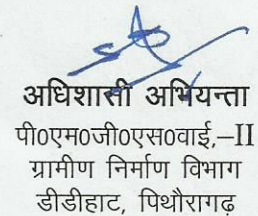 अधिशासी अभियन्ता
पी०एम०जी०एस०वाई,–II
ग्रामीण निर्माण विभाग
डीडीहाट, पिथौरागढ़